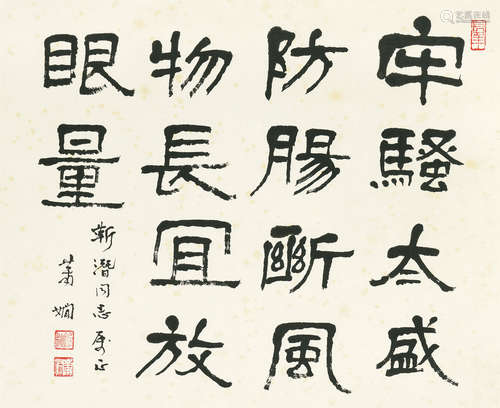 牢騷太盛
防腸斷風
物長宜放
眼量
靳潛同志屬正
蕭嫻